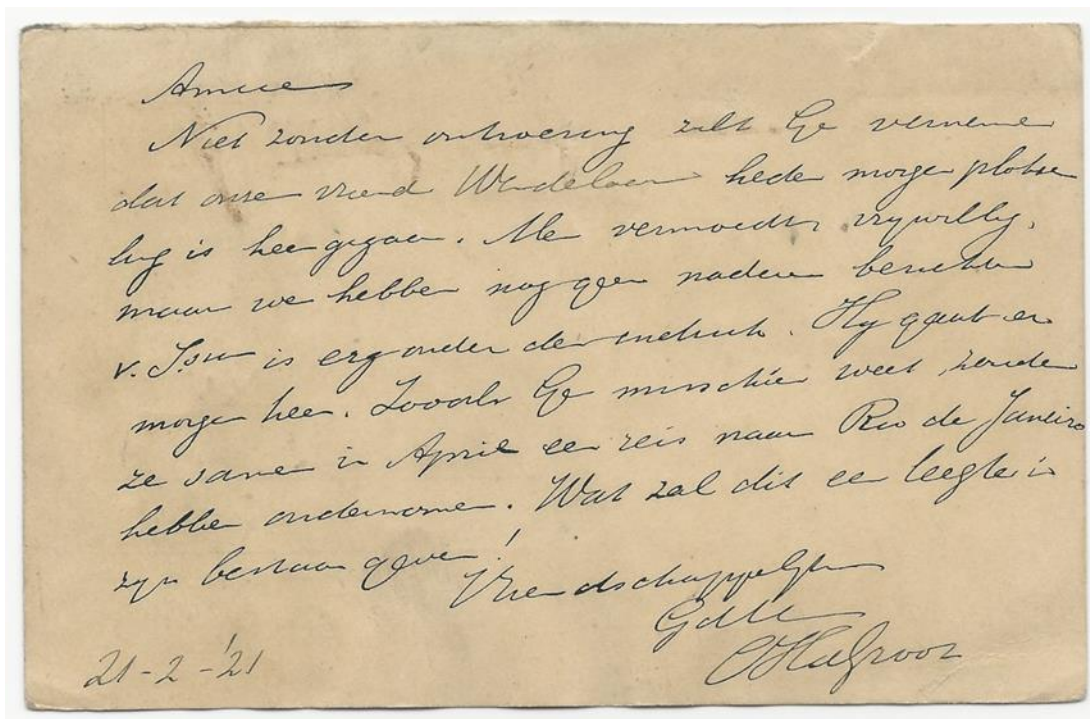 Amice
Niet zonder ontroering zult Ge vernemen
dat onze vriend Wandelaar heden morgen plotse
ling is heengegaan. Men vermoedt vrijwillig,
maar we hebben nog geen nadere berichten
v. is erg onder den indruk. Hij gaat er
morgen heen. Zooals Ge misschien weet zouden
ze samen in April een reis naar Rio de Janeiro
hebben ondernomen. Wat zal dit een leegte in
zijn bestaan geven!
Vriendschappelijk
21-2-'21